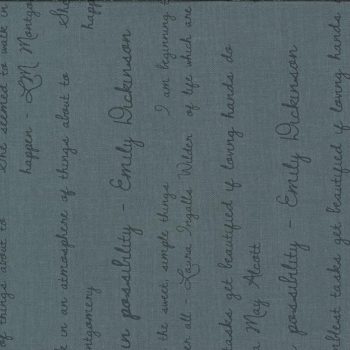 of things about to She seemed to walk in
happen - L.M. Montgo
k in an atmosphere of things about to She
ntgomery happ
in possibility - Emily Dickenson
the sweet, simple things I am beginning t
er all - Laura Ingalls Wilder of life which are
tasks get beautified if loving hands do
a May Alcott
possibility - Emily Dickenson
mblest tasks get beautified if loving hands